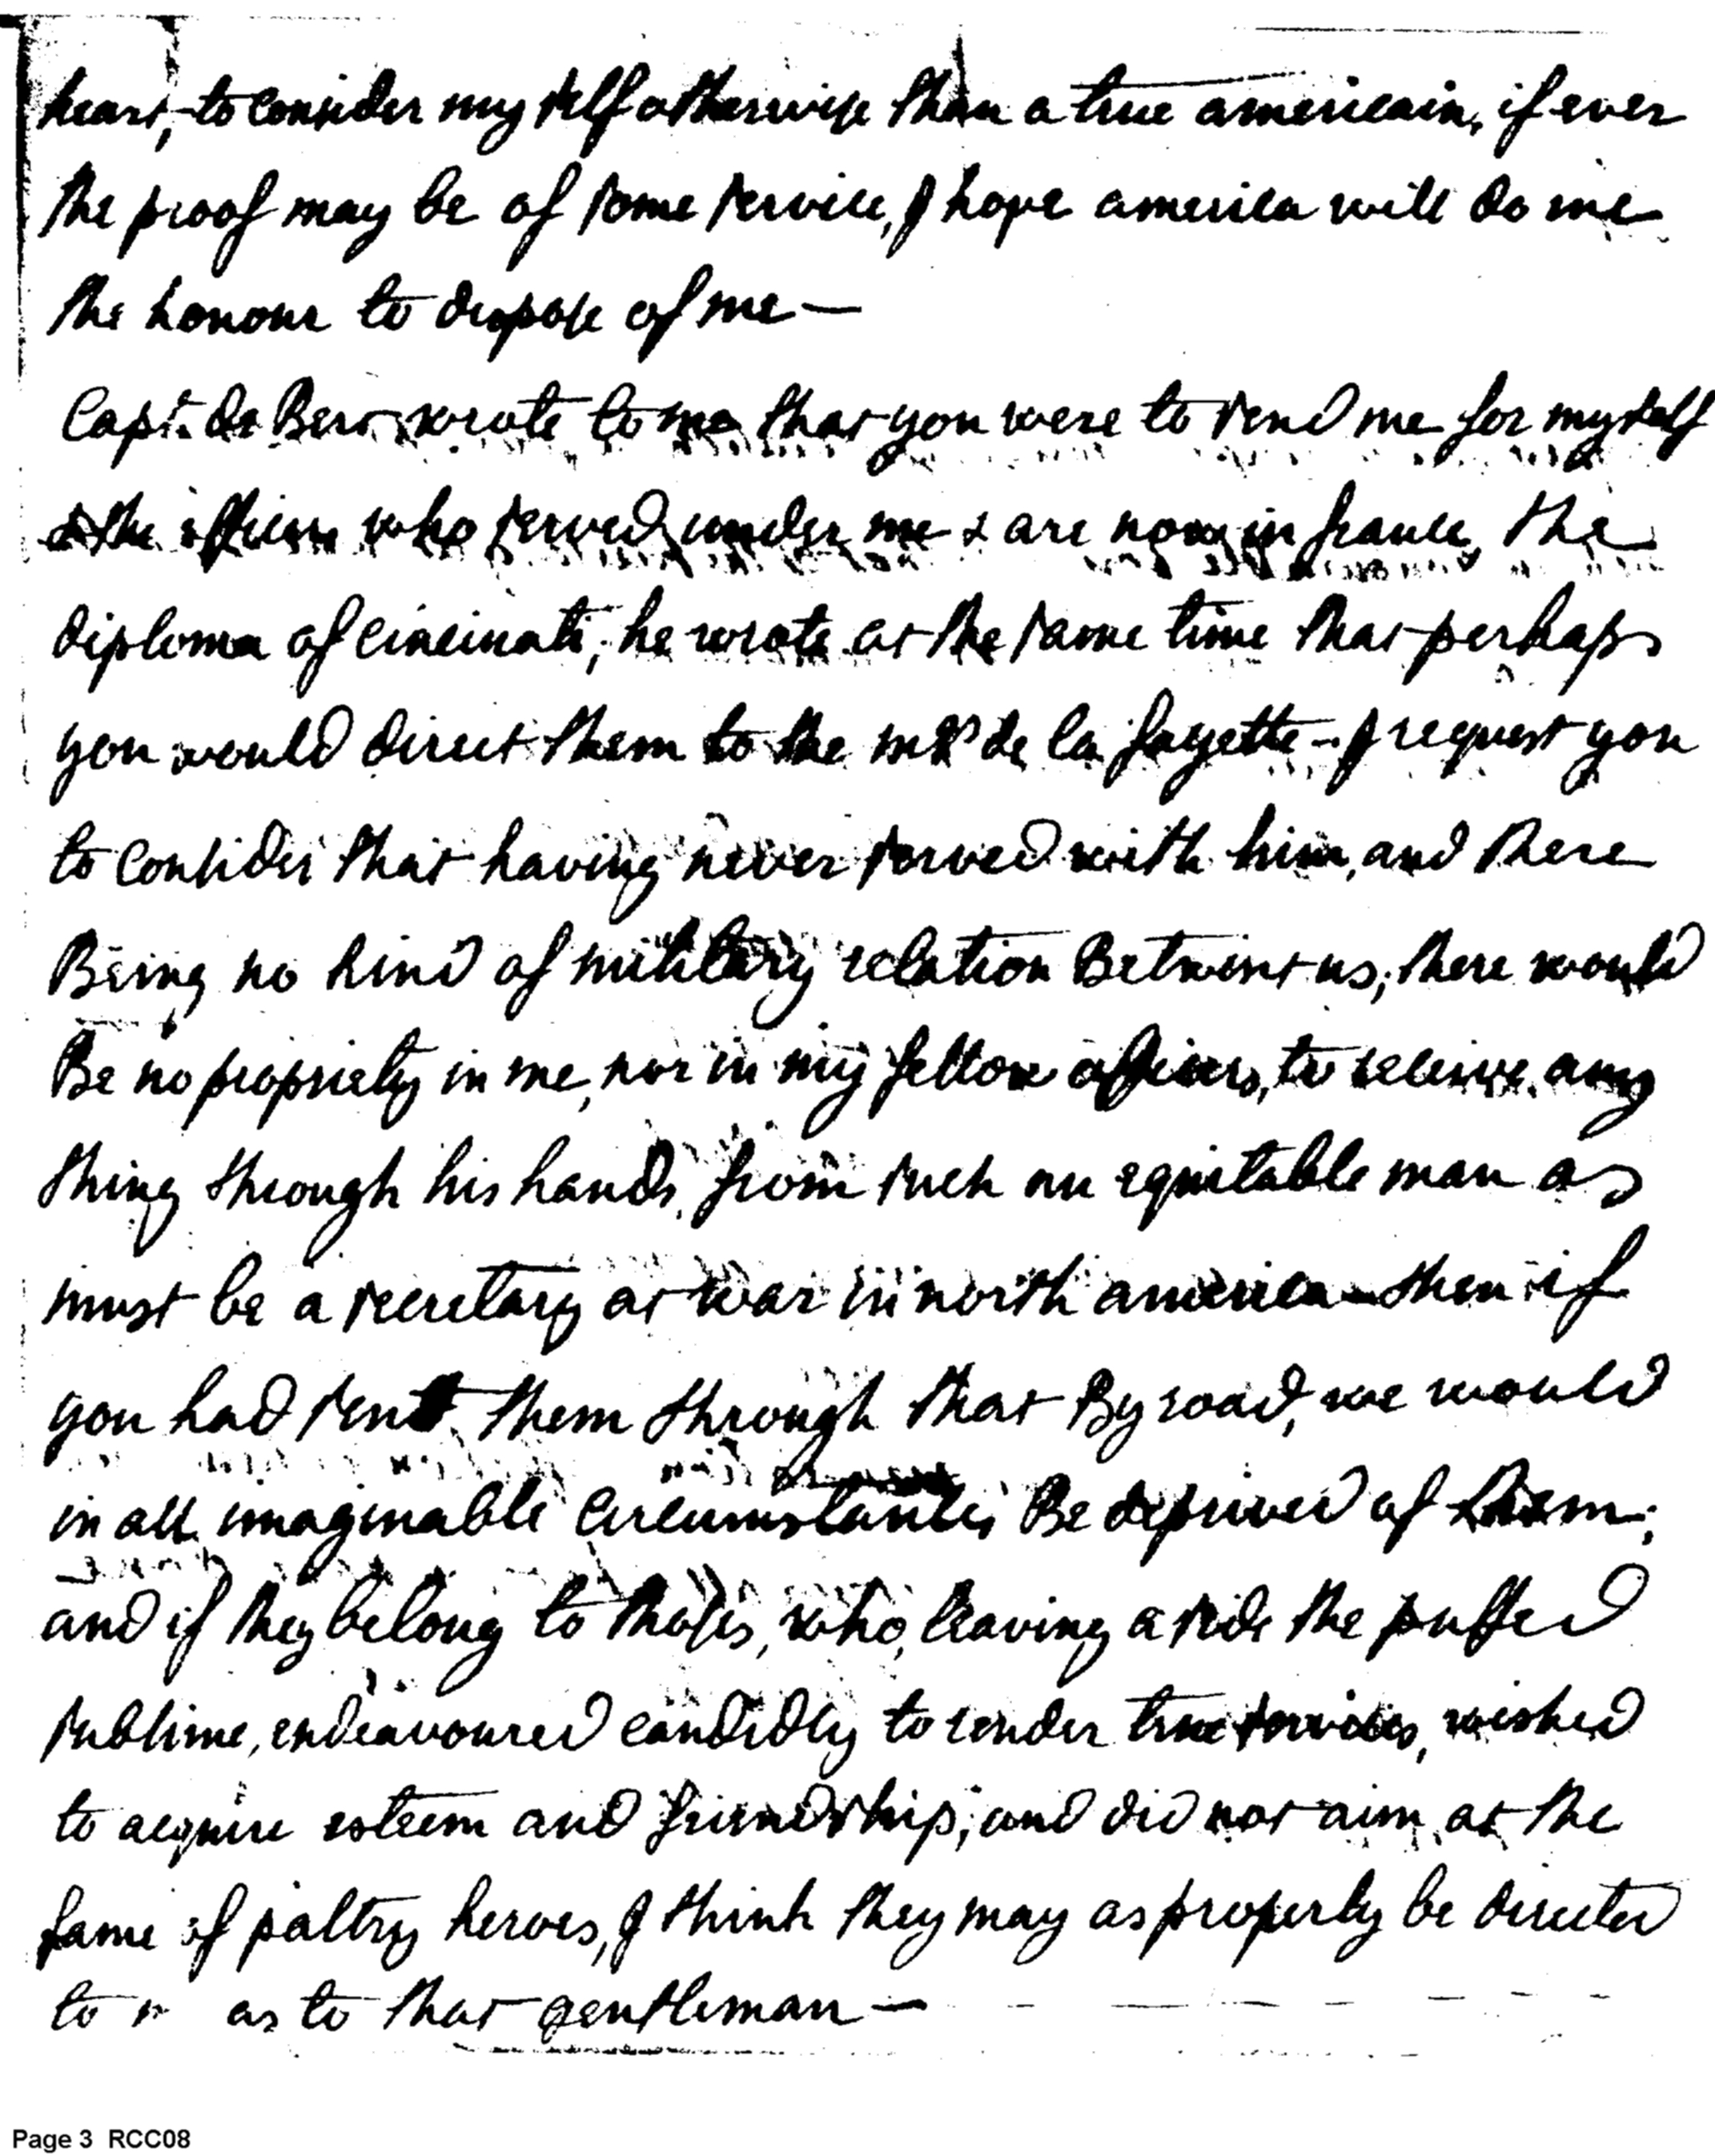 heart, to consider my self otherwise than a true americain, if ever
the proof may be of some service, I hope america will do me
the honour to dispose of me —
Capt. de Bert wrote to me that you were to send me for my self
& the officers who served under me & are now in france, the
diploma of cincinati, he wrote at the same time that perhaps
you would direct them to the mqs de la fayette - I request you
to consider that having never served with him, and there
Being no kind of military relation Betwixt us, there would
Be no propriety in me, nor in my fellow officers, to receive any
thing through his hands, from such an equitable man as
must be a secretary at war in north america - then if
you had sent them through that By road, we would
in all imaginable circumstances Be deprived of them;
and if they belong to thoses, who, leaving a side the puffed
sublime, endeavoured candidly to render true services, wished
to acquire esteem and friendship, and did not aim at the
fame of paltry heroes, I think they may as properly be directed
to as to that gentleman —
Page 3 RCC08